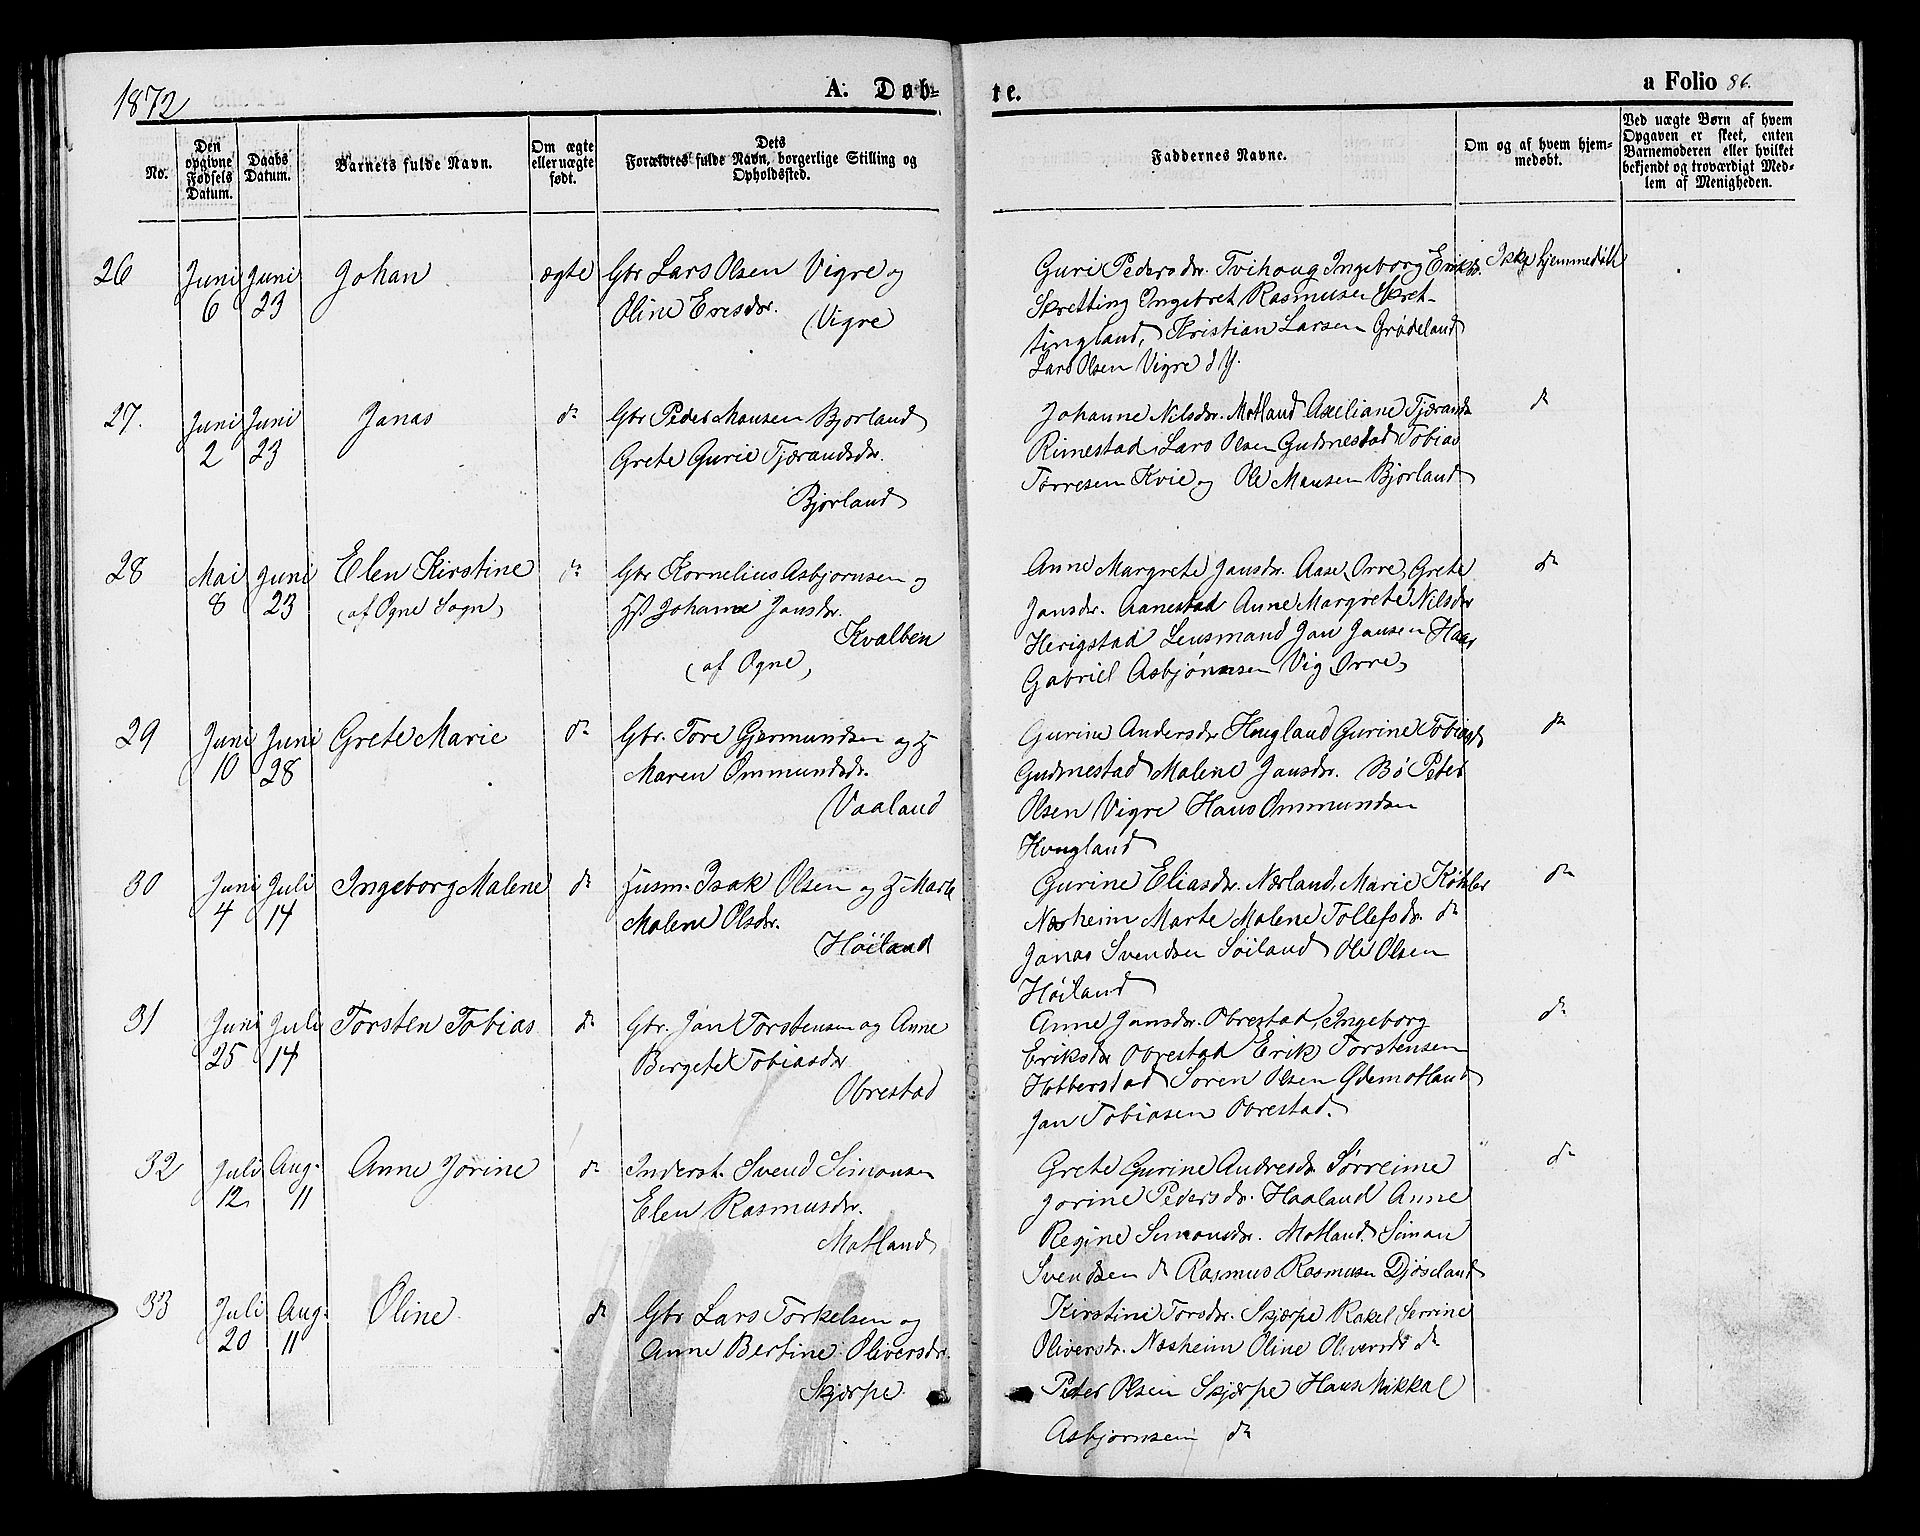 1872
A. Døb-
te.
a Folio 86.
No.
Den opgivne Fødsels Datum.
Daabs Datum.
Barnets fulde Navn.
Om ægte eller uægte født.
Dets Forældres fulde Navn, borgerlige Stilling og Opholdssted.
Faddernes Navne.
Om og af hvem hjemmedøbt.
Ved uægte Børn af hvem Opgaven er skeet, enten Barnemoderen eller hvilket bekjendt og troværdigt Medlem af Menigheden.
26 Juni 6 Juni 23 Johan ægte Gbr Lars Olsen Vigre og
Oline Eresdr.
Vigre
Guri Pedersdr. Tvihoug Ingeborg Eriksdr.
Skretting Ingebret Rasmusen Skret-
tingland, Kristian Larsen Grødeland
Lars Olsen Vigre d Y.
Ikke hjemmedøbt
27. Juni 2 Juni 23 Jonas do Gbr Peder Monsen Bjorland
Grete Gurie Tjærandsdr.
Bjorland
Johanne Nilsdr. Motland Axeliane Tjærandsd
Rimestad, Lars Olsen Gudmestad Tobias
Torresen Kvie og Ole Monsen Bjorland
do
28 Mai 8 Juni 23 Elen Kirstine do
(af Ogne Sogn)
Gbr Kornelius Asbjornsen og
Hst Johanne Jonsdr.
Kvalben
(af Ogne)
Anne Margrete Jonsdr. Aase Orre, Grete
Jonsdr. Aanestad Anne Margrete Nilsdr
Herigstad Lensmand Jon Jonsen Haar
Gabriel Asbjørnsen Vig Orre
do
29 Juni 10 Juni 28 Grete Marie do Gbr. Tore Gjermundsen og H
Maren Ommundsdr.
Vaaland
Gurine Andersdr Hougland Gurine Tobiasd
Gudmestad Malene Jonsdr. Bø Peder
Olsen Vigre Hans Ommundsen
Hougland
do
30 Juni 4 Juli 14 Ingeborg Malene do Husm. Isak Olsen og H Marte
Malene Olsdr.
Høiland
Gurine Eliasdr. Nærland, Marie Køhler
Næsheim Marte Malene Tollefsdr. do
Jonas Svendsen Søiland Ole Olsen
Høiland
do
31 Juni 25 Juli 14 Torsten Tobias do Gbr. Jon Torstensen og Anne
Bergete Tobiasdr
Obrestad
Anne Jonsdr. Obrestad, Ingeborg
Eriksdr Obrestad Erik Torstensen
Hobberstad Soren Olsen Ødemotland
Jon Tobiasen Obrestad.
do
32 Juli 12 Aug. 11 Anne Jorine do Inderst. Svend Simonsen
Elen Rasmusdr.
Motland
Grete Gurine Andresdr Sørreime
Jorine Pedersdr. Haaland Anne
Regine Simonsdr. Motland. Simon
Svendsen do Rasmus Rasmusen Djøseland
do
33 Juli 20 Aug. 11 Oline do Gbr Lars Torkelsen og
Anne Bertine Oliversdr.
Skjærpe
Kirstine Torsdr. Skjærpe Rakel Serrine
Oliversdr. Næsheim Oline Oliversdr do
Peder Olsen Skjærpe Hans Mikkal
Asbjornsen do